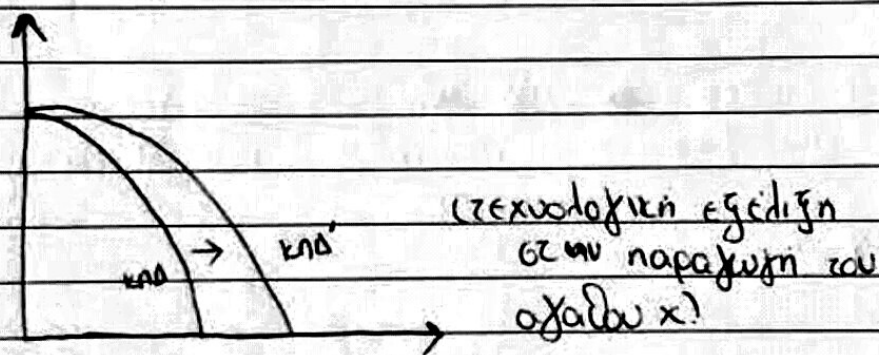 ΚΠΔ
→
ΚΠΔ'
(τεχνολογική εξέλιξη
στην παραγωγή του
αγαθου x)